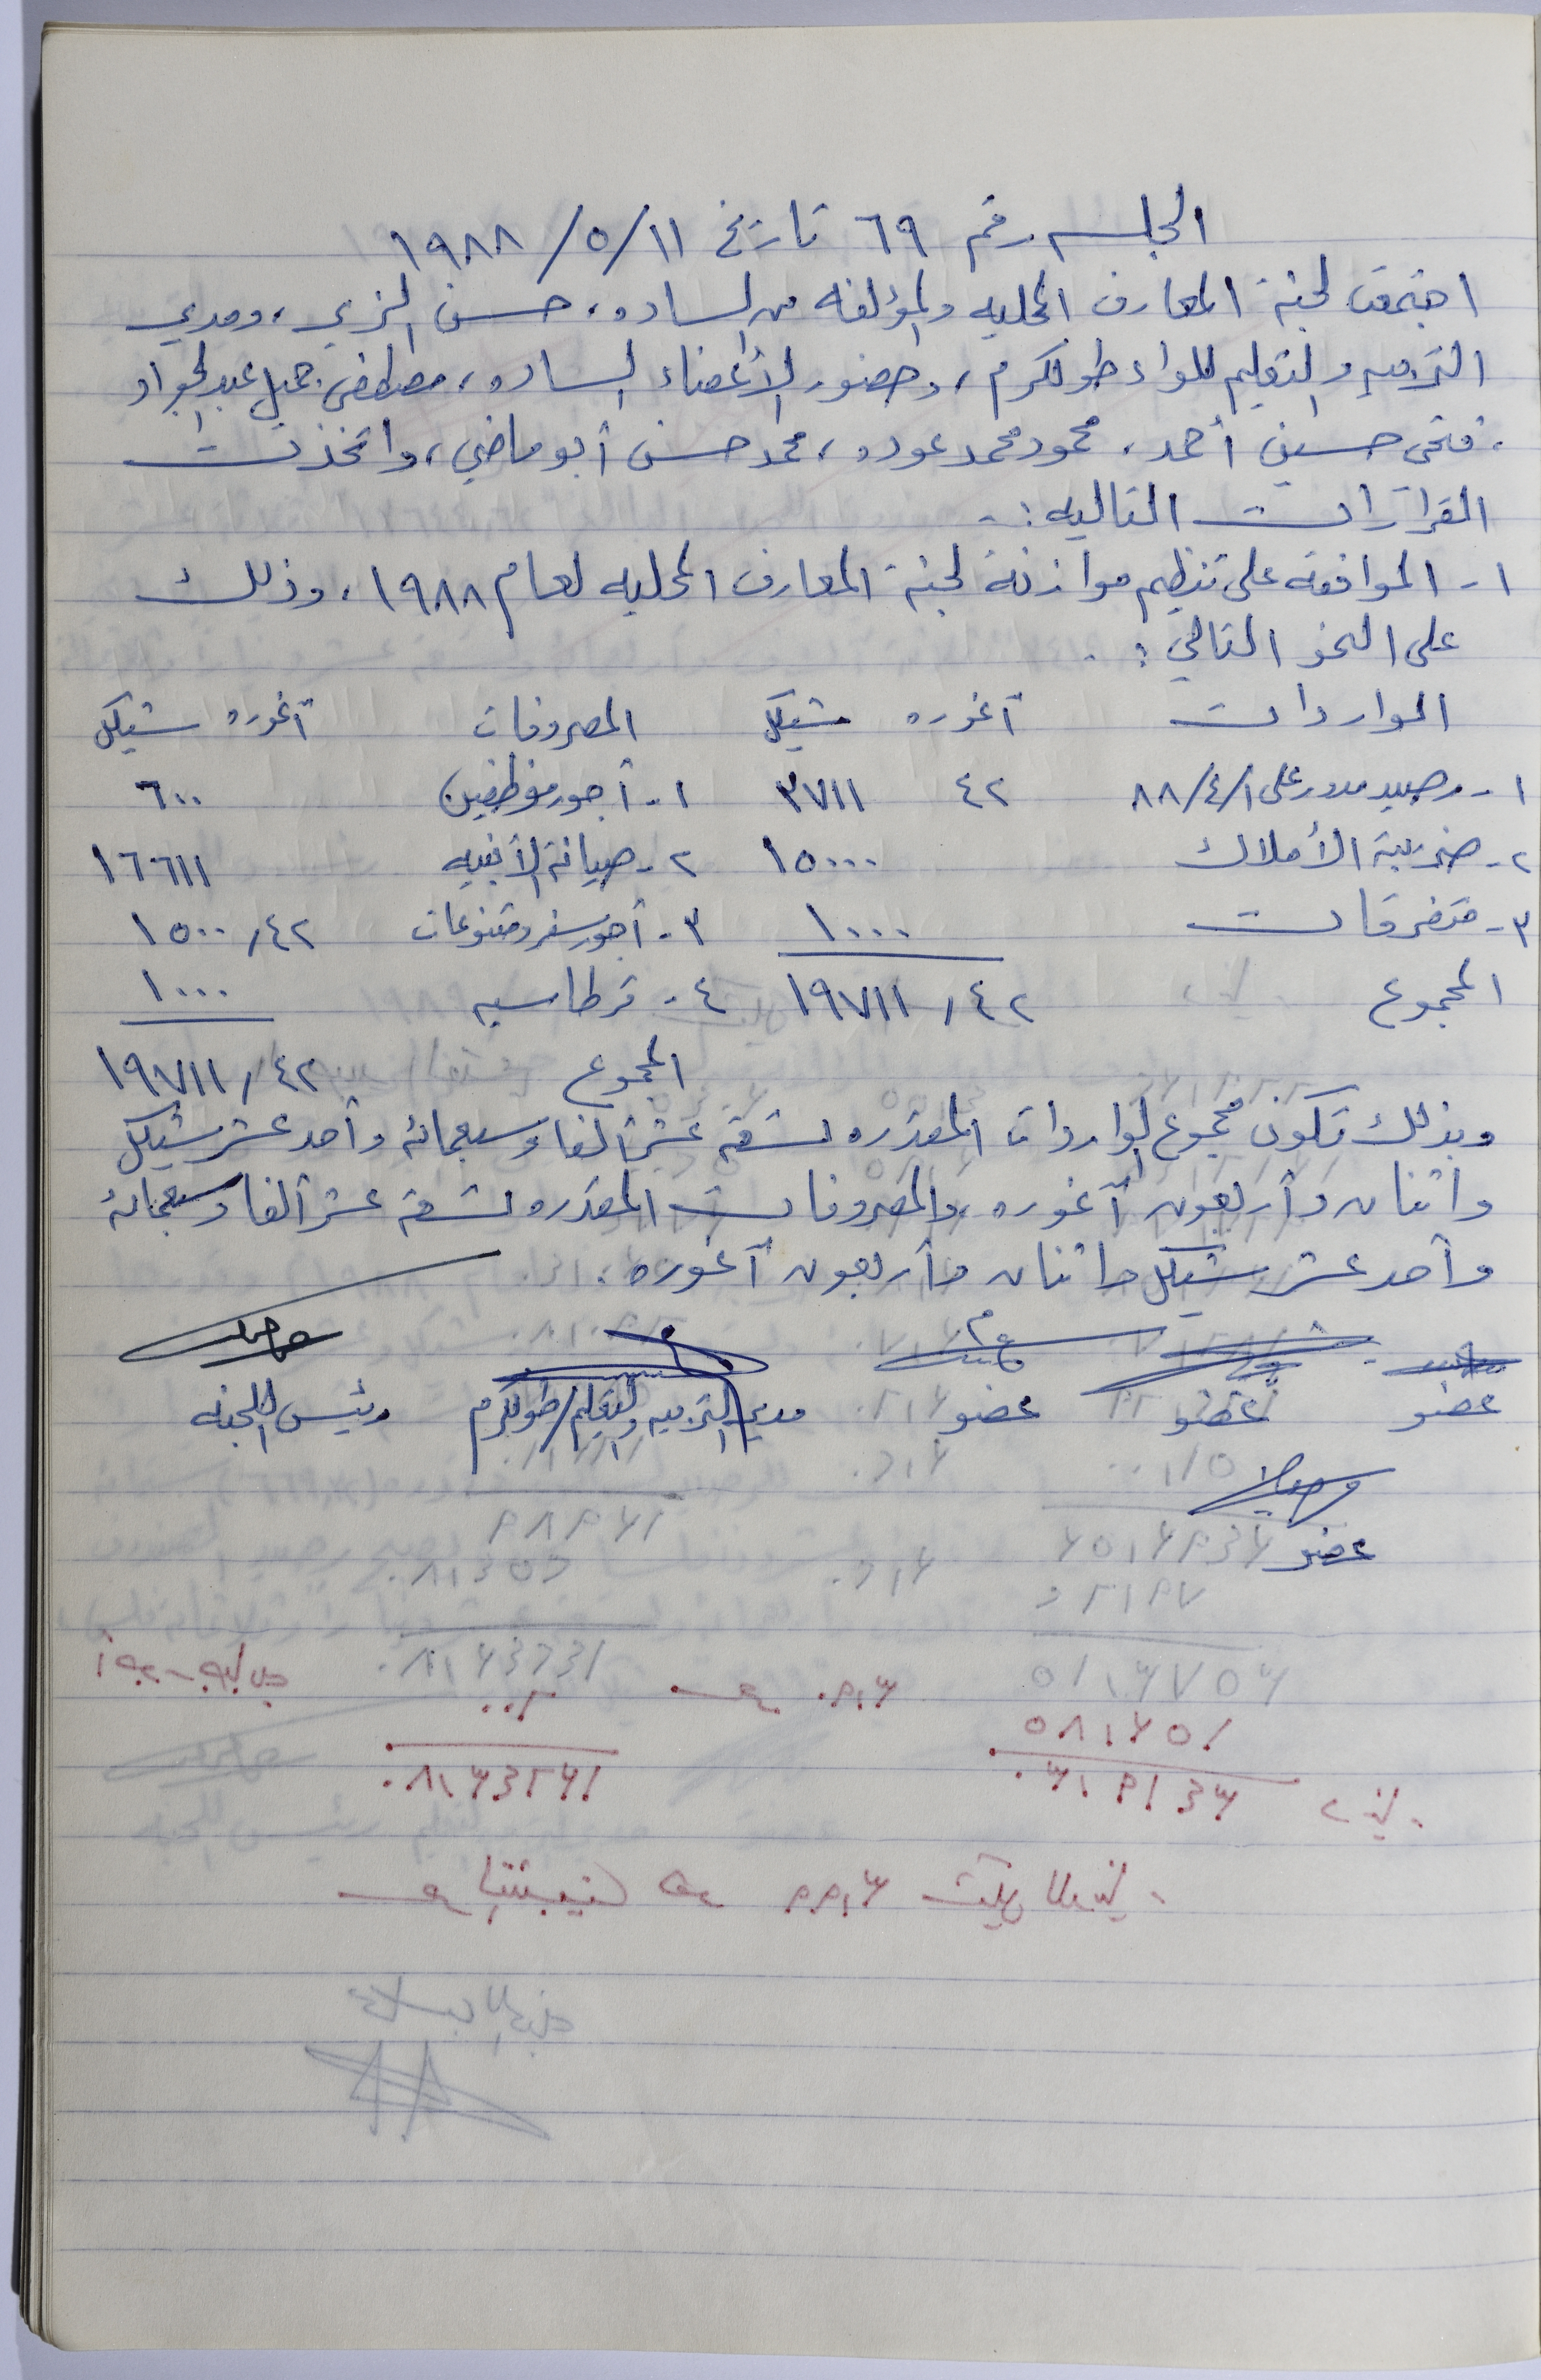 الجلسه رقم ٦٩ تاريخ ١١/٥/١٩٨٨
اجتمعت لجنة المعارف المحليه والمؤلفه من الساده، حسن الزير، ومدير
التربيه والتعليم للواء طولكرم، وحضور الأعضاء الساده، مصطفى جميل عبدالجواد
، فتحي حسين أحمد، محمود محمد عوده، محمد حسن أبو ماضي، واتخذت
القرارات التاليه :-
١- الموافقه على تنظيم موازنة لجنة المعارف المحليه لعام ١٩٨٨، وذلك
على النحو التالي :-
الواردات آغوره شيكل المصروفات آغوره شيكل
١- رصيد مدور على ٨٨/٤/١ ٤٢ ٣٧١١ ١- أجور موظفين ٦٠٠
٢- ضريبة الأملاك ١٥٠٠٠ ٢- صيانة الأبنيه ١٦٦١١
٣- متفرقات ١٠٠٠ ٣- أجور سفر ومتنوعات ٤٢، ١٥٠٠
المجموع ٤٢، ١٩٧١١ ٤- قرطاسيه ١٠٠٠
المجموع ٤٢، ١٩٧١١
وبذلك تكون مجموع الواردات المقدره تسعة عشر ألفا وسبعمائه وأحد عشر شيكل
واثنان وأربعون آغوره، والمصروفات المقدره تسعة عشر ألفا وسبعمائه
وأحد عشر شيكل واثنان وأربعون آغوره.
عضو عضو عضو مدير التربيه والتعليم/طولكرم رئيس اللجنه
عضو